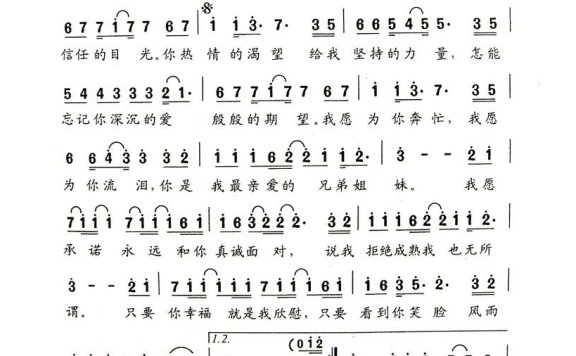 6 7 7 1 7 7 6 7 | 1 1 3· 7· 3 5 | 6 6 5 4 5 5· 3 5 |
信任的目 光。你热 情的渴望 给我 坚持的力 量，怎能
5 4 4 3 3 3 2 1· | 6 7 7 1 7 7 6 7 | 1 1 3· 7· 3 5 |
忘记你深沉的爱 殷殷的期 望。我愿 为你奔忙，我愿
6 6 4 3 3 3 2 | 1 1 1 6 2 2 1 1 2· | 3 - - 2 1 |
为你流 泪，你是 我最亲爱的 兄弟姐 妹。 我愿
7 1 1 1 7 1 1 1 6 1 | 1 6 3 2 2 2· 3 2 | 1 1 1 1 6 2 2 1 1 2· |
承诺 永远 和你真诚面 对， 说我 拒绝成熟我 也无所
3 - - 2 1 | 7 1 1 1 7 1 1 1 6 1 | 1 6 3 5· 2· 3 2 |
谓。 只要 你幸福 就是我欣慰，只要 看到你笑 脸 风雨
1.2.
(0 1 2